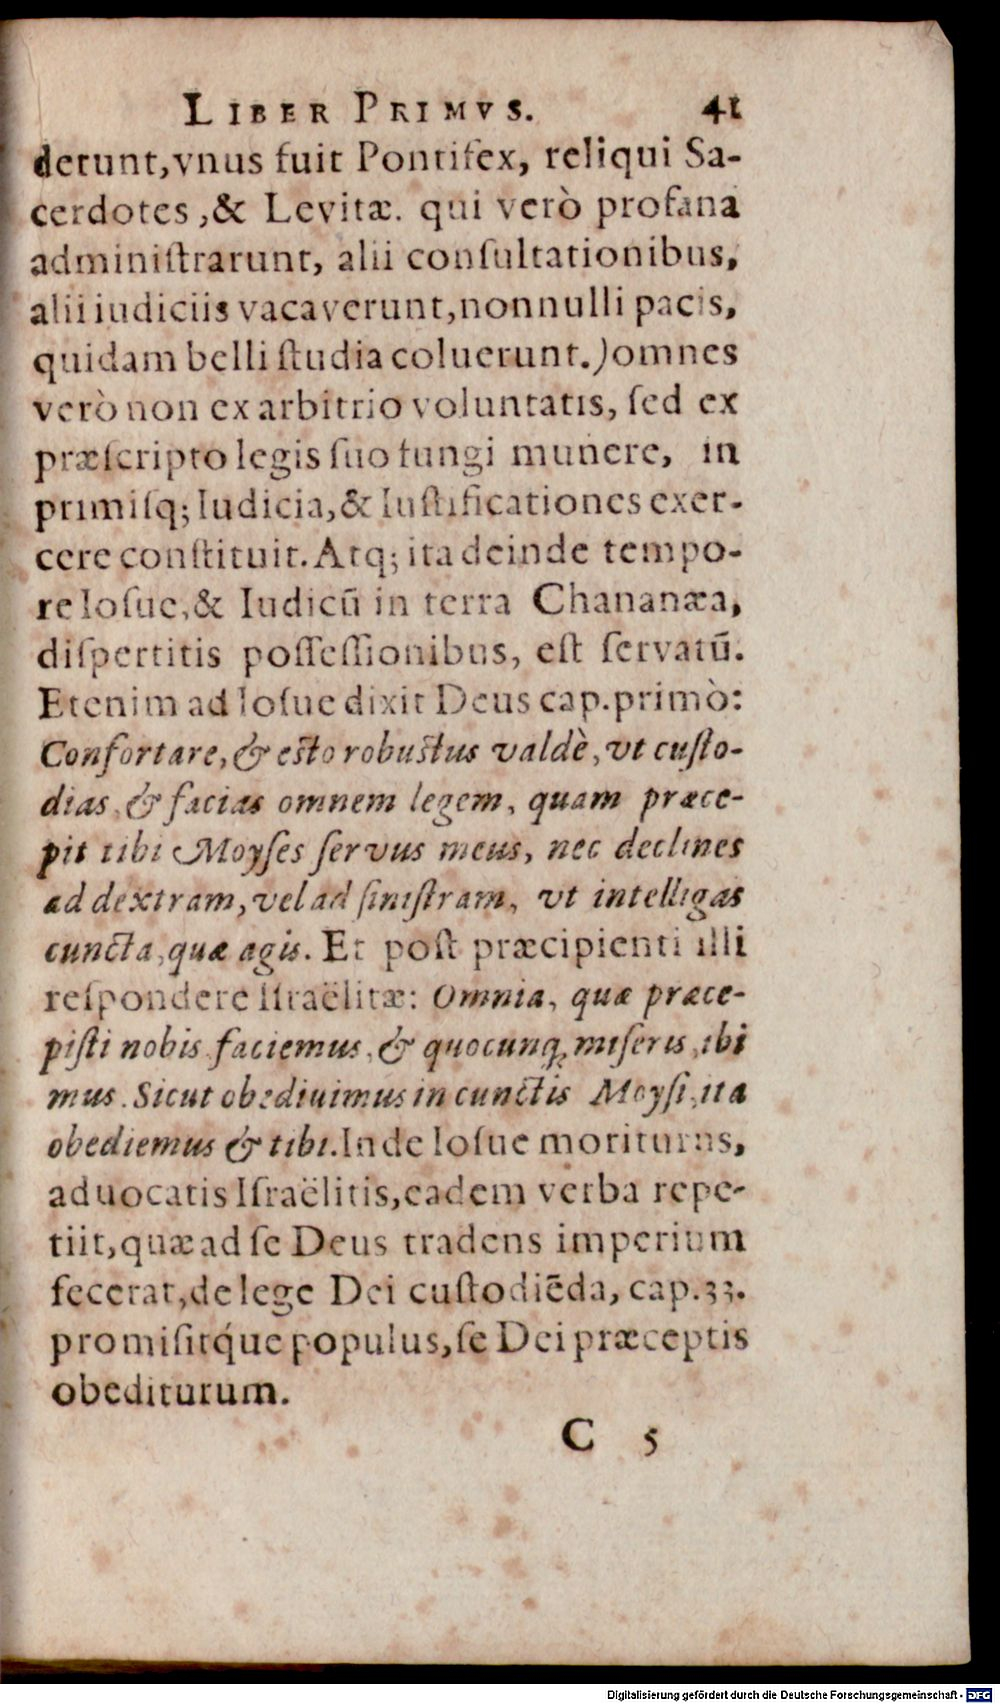 LIBER PRIMVS. 41
derunt,vnus fuit Pontifex, reliqui Sa-
cerdotes,& Levitæ. qui verò profana
adminiſtrarunt, alii conſultationibus,
alii iudiciis vacaverunt,nonnulli pacis,
quidam belli ſtudia coluerunt.)omnes
verò non ex arbitrio voluntatis, ſed ex
præſcripto legis ſuo fungi munere, in
primiſq; Iudicia,& Iuſtificationes exer-
cere conſtituit. Atq; ita deinde tempo-
re Ioſue,& Iudicū in terra Chananæa,
diſpertitis poſſeſſionibus, eſt ſervatū.
Etenim ad Ioſue dixit Deus cap.primò:
Confortare,& eſto robuſtus valdè,vt cuſto-
dias,& facias omnem legem, quam præce-
pit tibi Moyſes ſervus meus, nec declines
ad dextram,vel ad ſiniſtram, vt intelligas
cuncta,quæ agis. Et poſt præcipienti illi
reſpondere Iſraëlitæ: Omnia, quæ præce-
piſti nobis faciemus,& quocunq; miſeris,ibi
mus. Sicut obediuimus in cunctis Moyſi,ita
obediemus & tibi. Inde Ioſue moriturus,
aduocatis Iſraëlitis,eadem verba repe-
tiit,quæ ad ſe Deus tradens imperium
fecerat,de lege Dei cuſtodiēda, cap.33.
promiſitq́ue populus,ſe Dei præceptis
obediturum.
C 5
Digitalisierung gefördert durch die Deutsche Forschungsgemeinschaft - DFG